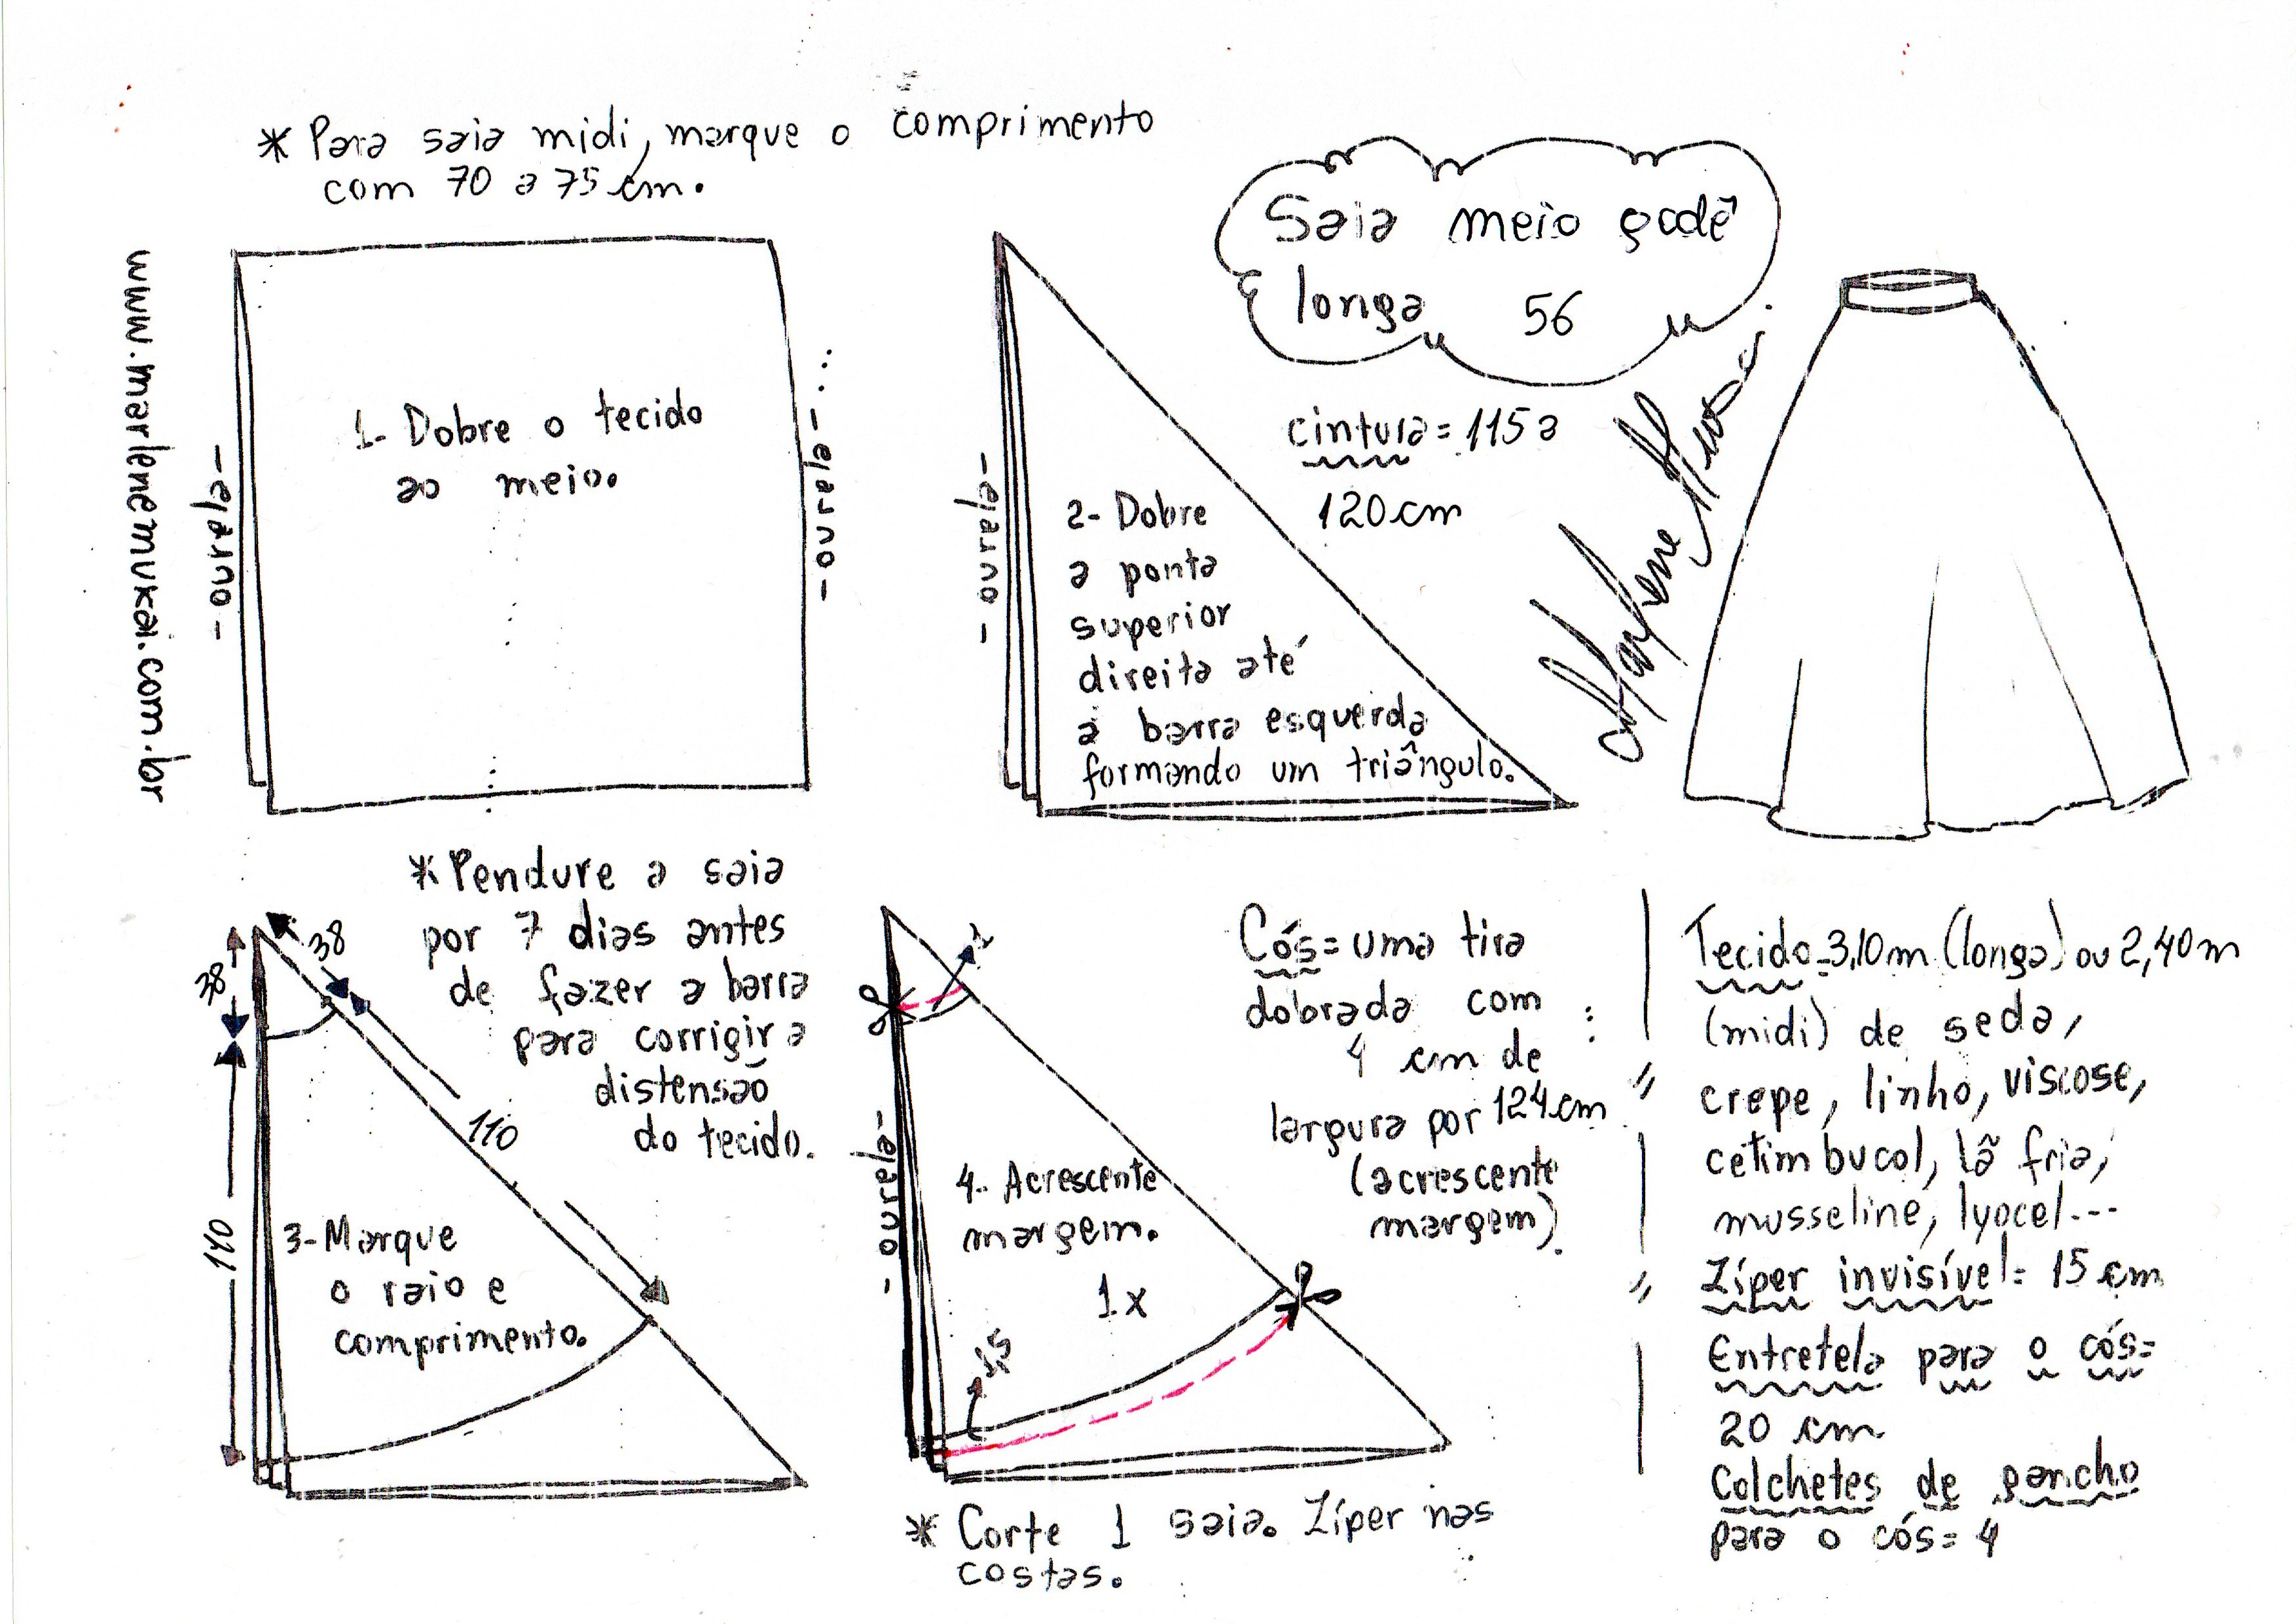 * Para saia midi, marque o comprimento
com 70 a 75 cm.
Saia meio godê
longa 56
www.marlenemukai.com.br
1- Dobre o tecido
ao meio.
- ourela -
- ourela -
- ourela -
2- Dobre
a ponta
superior
direita até
a barra esquerda
formando um triângulo.
cintura = 115 a
120 cm
Marlene Mukai
* Pendure a saia
por 7 dias antes
de fazer a barra
para corrigir a
distensão
do tecido.
38
38
110
110
3- Marque
o raio e
comprimento.
- ourela -
4- Acrescente
margem.
1 x
1
1,5
* Corte 1 saia. Zíper nas
costas.
Cós = uma tira
dobrada com
4 cm de
largura por 124 cm
(acrescente
margem).
Tecido = 3,10 m (longa) ou 2,40 m
(midi) de seda,
crepe, linho, viscose,
cetim bucol, lã fria,
musseline, lyocel...
Zíper invisível = 15 cm
Entretela para o cós =
20 cm
Colchetes de gancho
para o cós = 4